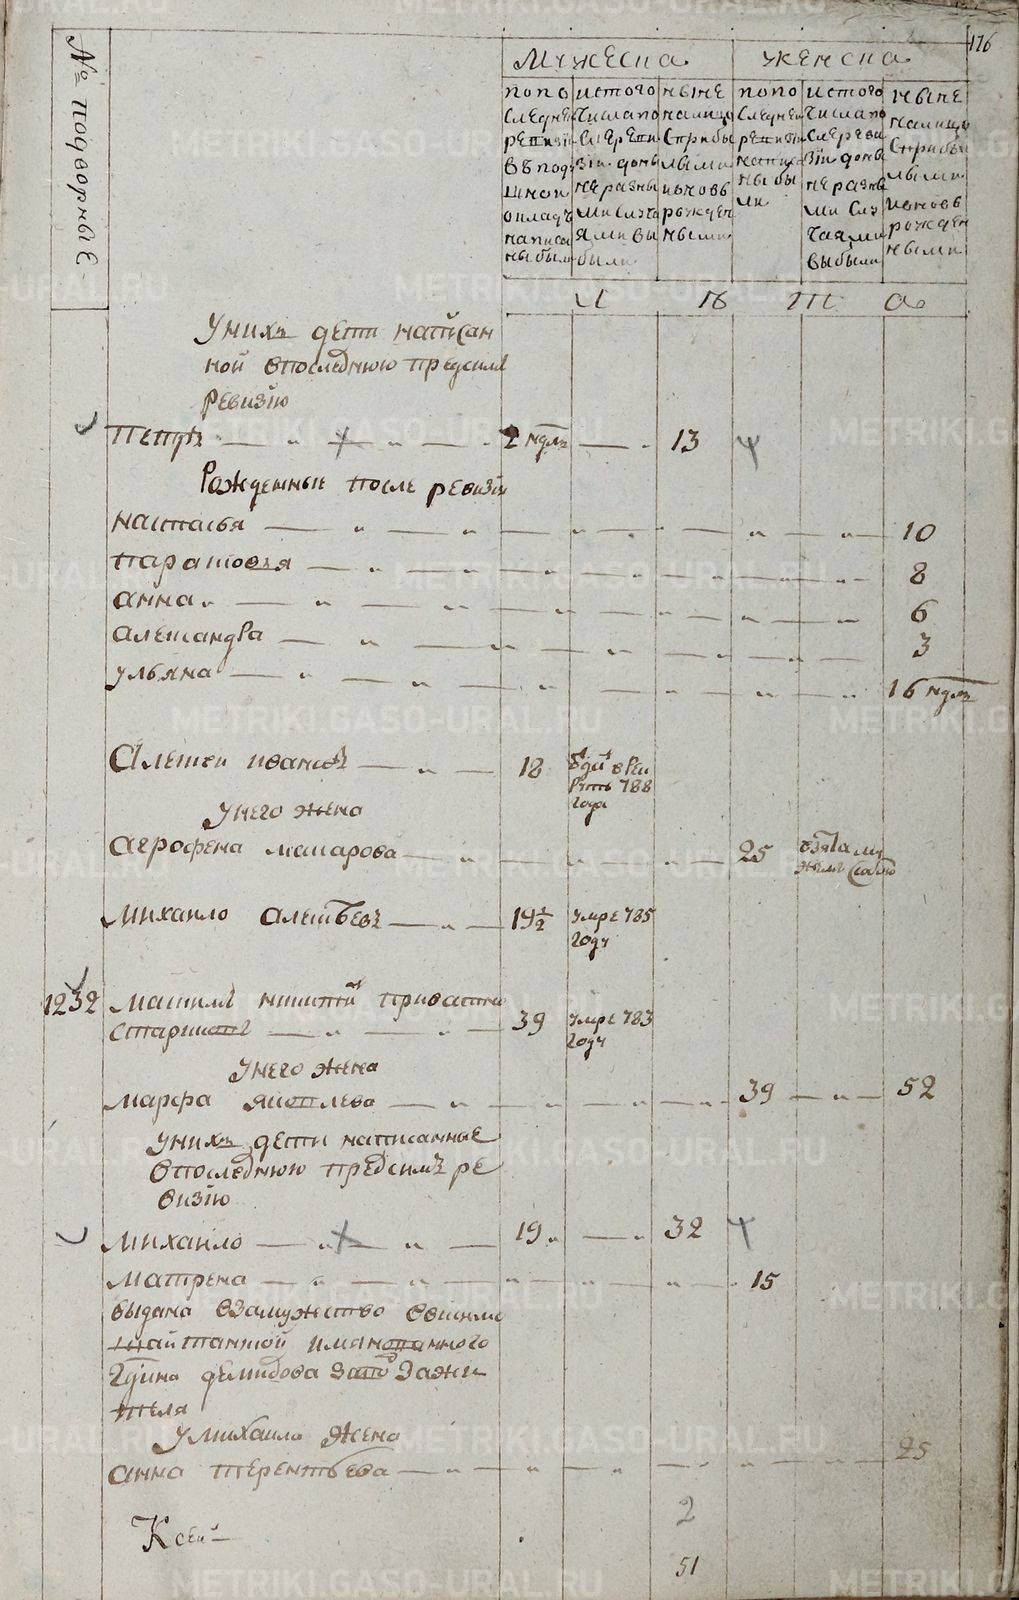 176
№ подворные
мужеска
женска
попо
следней
ревизiи
въпод
ушной
окладъ
написа
ны было
истого
числапо
слеревi
зiи дон
не разны
ми случа
ями вы
были
ныне
налицо
сприбы
лыми
ивновь
рожден
ными
попо
следней
ревизiи
написа
ны бы
ли
истого
числапо
слереви
зiи доны
не разны
ми слу
чаями
выбыли
ныне
налицо
сприбы
лыми
ивновь
рожден
ными
лѣта
Унихъ дети написан
ной впоследнюю предсимъ
ревизiю
петръ 2 ндлъ 13
Рожденные после ревизiи
настасья 10
парасковья 8
анна 6
александра 3
ульяна 16 ндлъ
Алексеи ивановъ 18 отдан в рек
руты 788
года
Унего жена
агрофена макарова 25 взята му
жемъ с собою
михаило алексѣевъ 19½ умре 785
году
1232 максимъ никитинъ приватки
стариковъ 39 умре 783
году
Унего жена
марфа яковлева 39 52
Унихъ дети написанные
впоследнюю предсимъ ре
визiю
михаило 19 32
матрена 15
выдана взамужство
имянованного
гдина демидова
теля
Умихаила жена
анна терентьева 25
2
Ксей
51